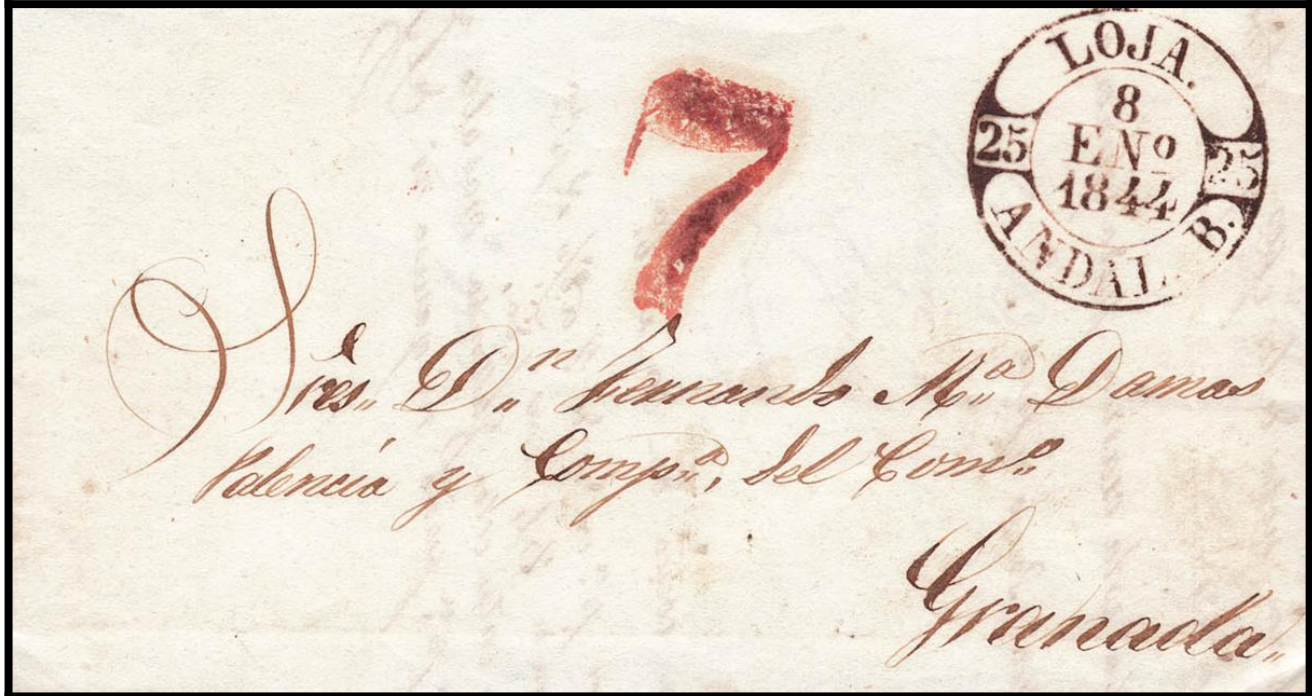 7
LOJA.
25 8 25
ENº
1844
ANDAL. B.
Sres,, Dn,, Fernando Mª,, Damas
Valencia y Compª,, del Comº
Granada,,